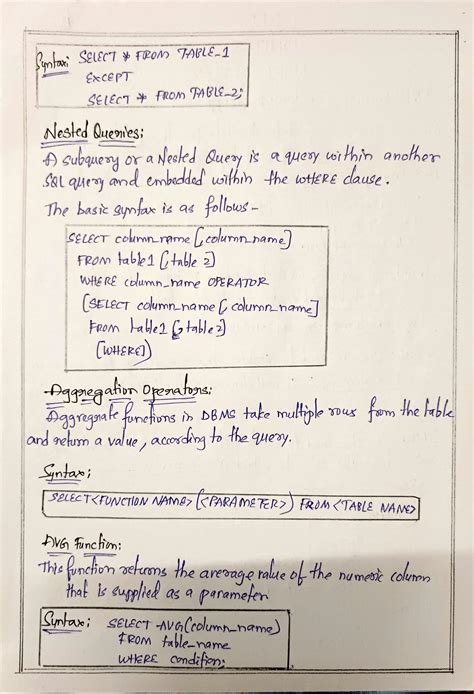 Syntax: SELECT * FROM TABLE_1
EXCEPT
SELECT * FROM TABLE_2;
Nested Queries:
A subquery or a Nested Query is a query within another
SQL query and embedded within the WHERE clause.
The basic syntax is as follows -
SELECT column_name [, column_name]
FROM table1 [, table 2]
WHERE column_name OPERATOR
(SELECT column_name [, column_name]
FROM table1 [, table 2]
[WHERE])
Aggregation Operators:
Aggregrate functions in DBMS take multiple rows from the table
and return a value, according to the query.
Syntax;
SELECT <FUNCTION NAME> (<PARAMETER>) FROM <TABLE NAME>
AVG Function:
This function returns the average value of the numeric column
that is supplied as a parameter
Syntax; SELECT AVG(column_name)
FROM table_name
WHERE condition;